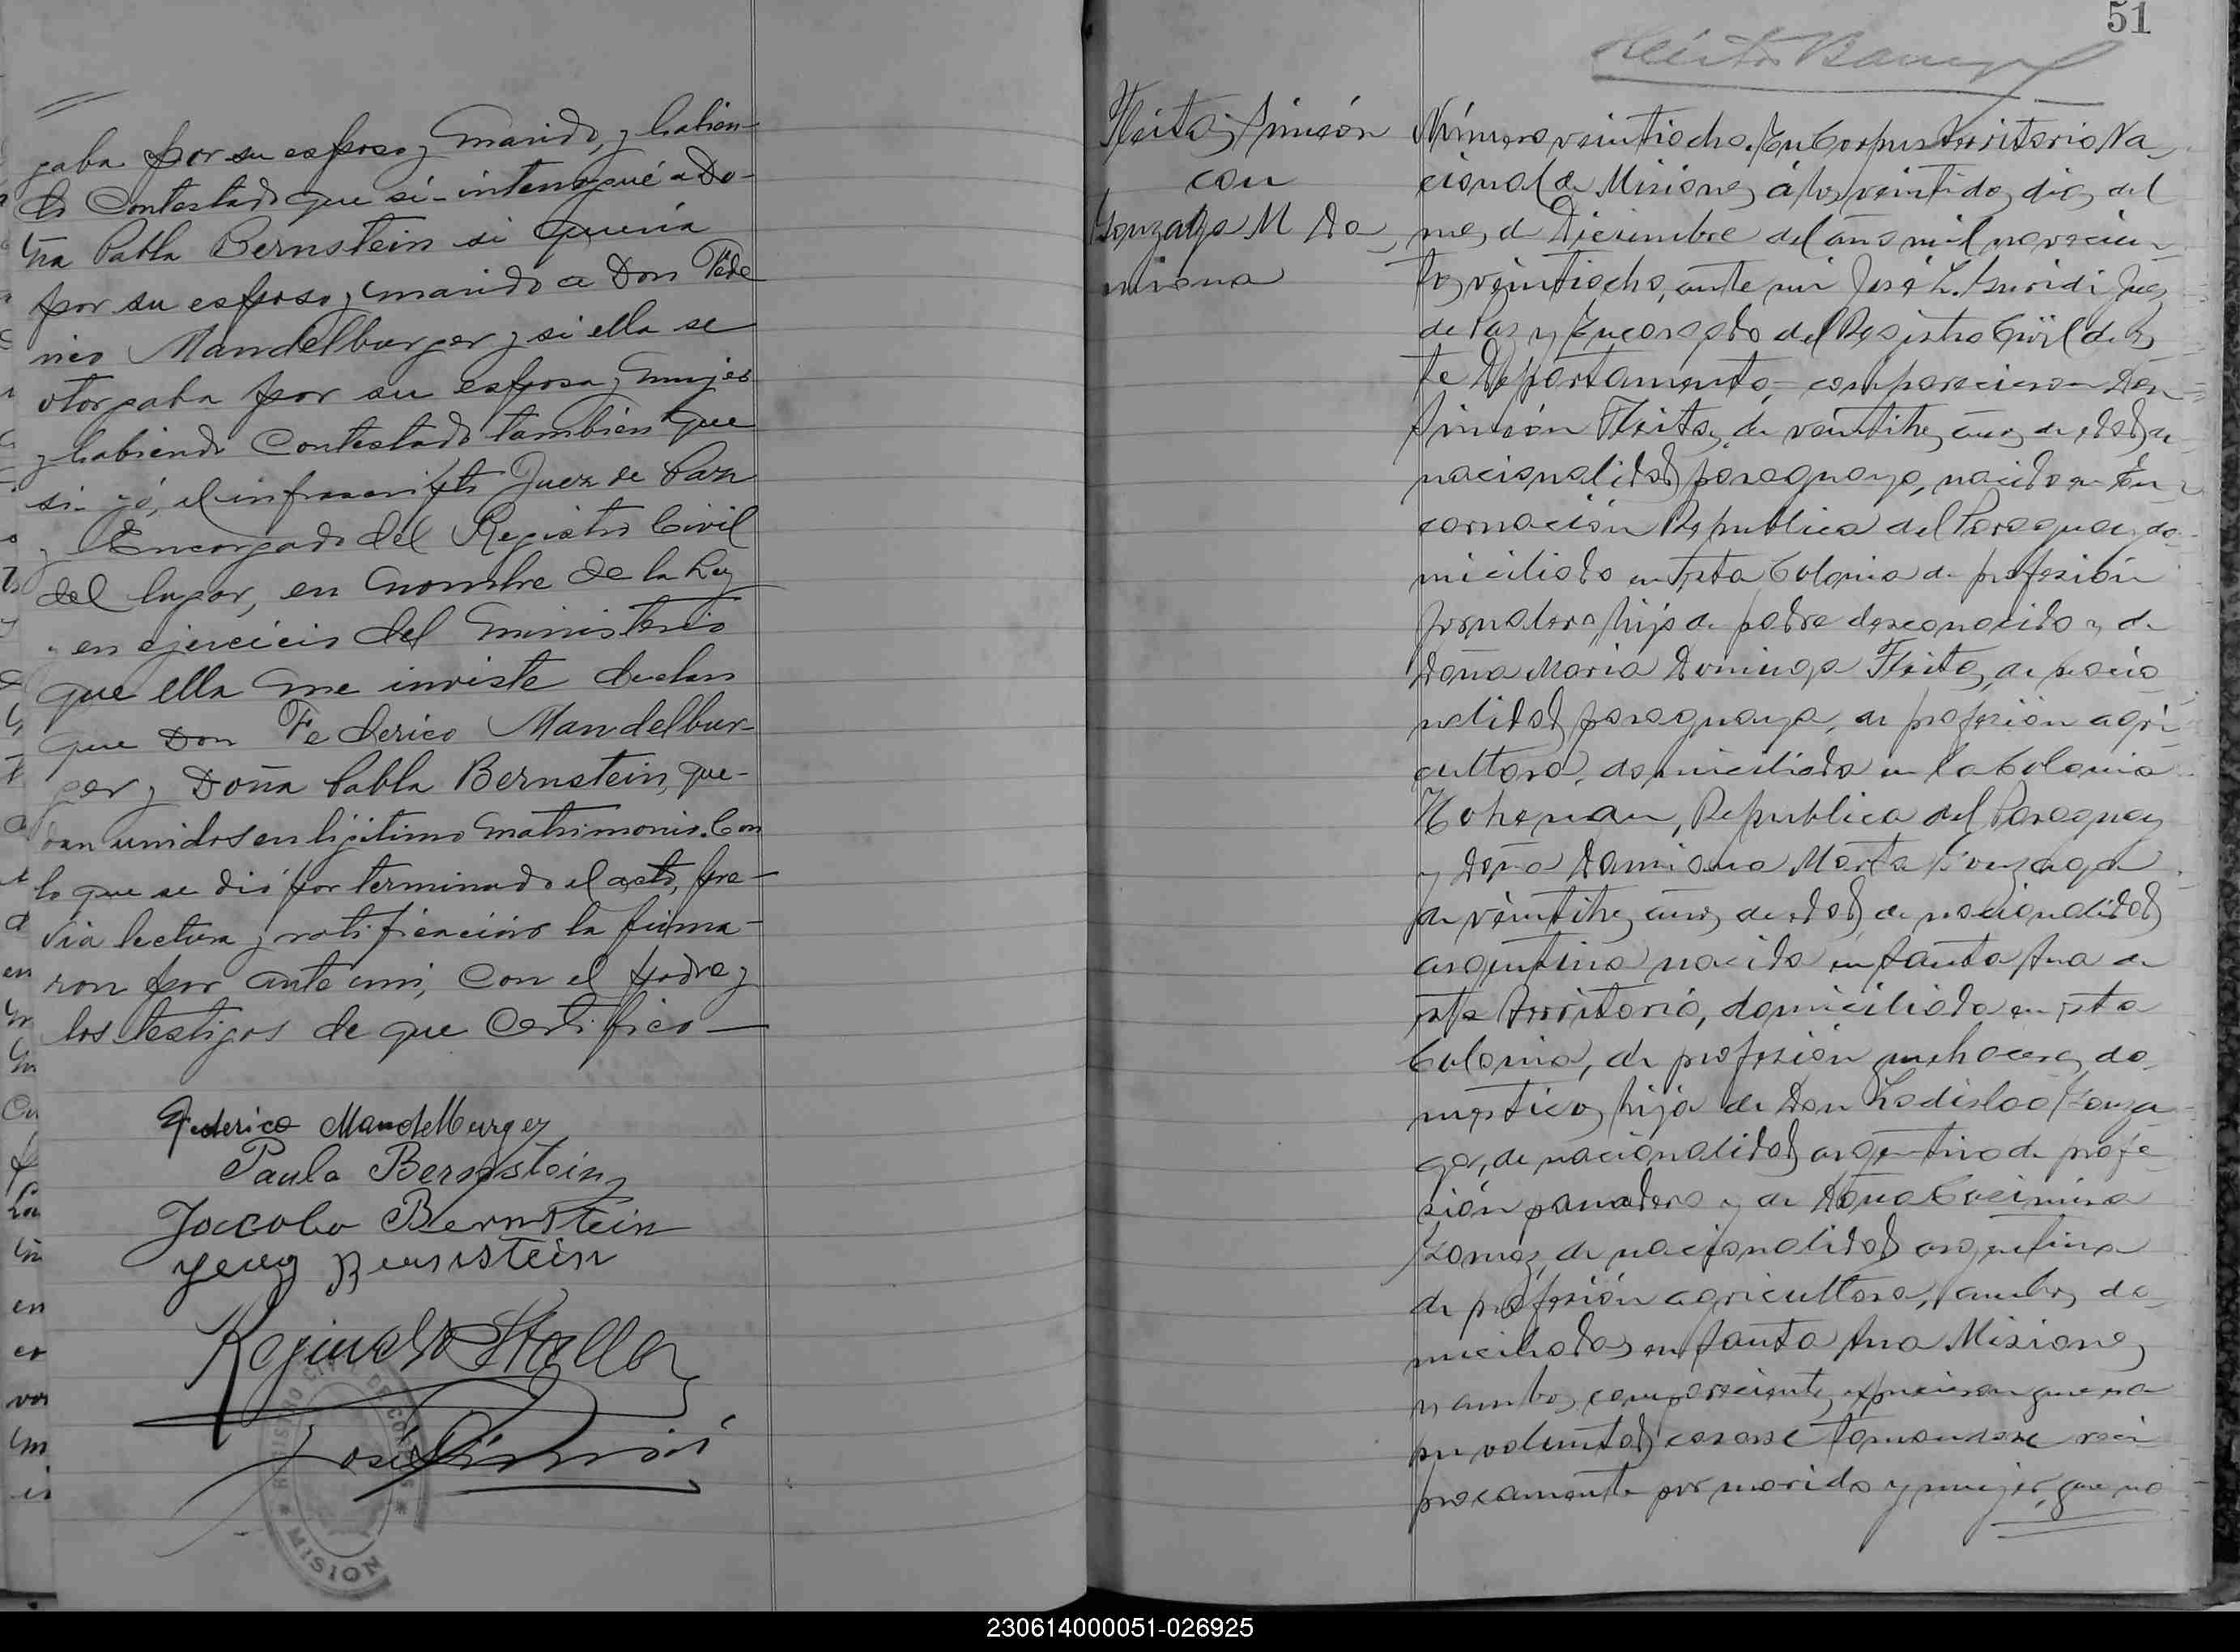 gaba por su esposo y marido, y habien-
do Contestado que sí - interrogué a Do-
ña Pabla Bernstein si quería
por su esposo y marido a Don Fede
rico Mandelburger y si ella se
otorgaba por su esposa y mujer
y habiendo Contestado tambien que
si - yó, el infrascripto Juez de Paz
y Encargado del Registro Civil
del lugar, en nombre de la Ley
y en ejercicio del ministerio
que ella me inviste declaro
que Don Federico Mandelbur-
ger y Doña Pabla Bernstein, que-
dan unidos en ligitimo matrimonio. Con
lo que se dió por terminado el acto, pre-
via lectura y ratificación la firma-
ron por ante mi, con el padre y
los testigos de que Certifico —
Federico Mandelburger
Paula Bernstein
Jacobo Bernstein
Bernstein
José
REGISTRO CIVIL DE CORPUS
* MISION
51
Fleitas Simeón
con
Gonzaga M Da
miana
Número veintiocho. En Corpus territorio Na
cional de Misiones á los veintidos dias del
mes de Diciembre del año mil novecien
tos veintiocho, ante mi José L. Guridi Juez
de Paz y Encargado del Registro Civil de es
te Departamento, comparecieron Don
Simeón Fleitas, de veintitres años de edad, de
nacionalidad paraguayo, nacido en En
carnación Republica del Paraguay, do
miciliado en esta Colonia de profesión
jornalero, hijo de padre desconocido y de
Doña Maria Dominga Fleitas, de nacio
nalidad paraguaya, de profesión agri
cultora, domiciliada en la Colonia
Hohenau, Republica del Paraguay
y Doña Damiana Marta Gonzaga
de veintitres años de edad, de nacionalidad
argentina nacida en Santa Ana de
este territorio, domiciliada en esta
Colonia, de profesión quehaceres do
mesticos, hija de Don Ladislao Gonza
ga, de nacionalidad argentino de profe
sión panadero y de Doña Casimira
Gomez, de nacionalidad argentina
de profesión agricultora, ambos do
miciliados en Santa Ana Misiones
y ambos comparecientes expresaron que era
su voluntad casarse tomandose reci
procamente por marido y mujer, que no
230614000051-026925